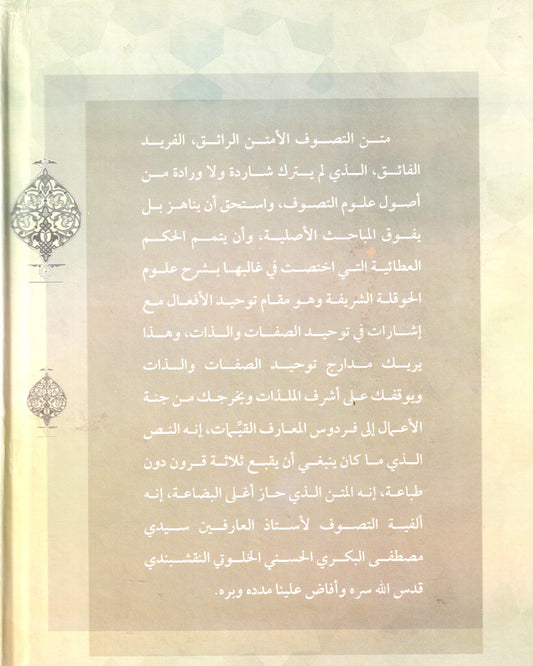 متن التصوف الأمتن الرائق، الفريد
الفائق، الذي لم يترك شاردة ولا ورادة من
أصول علوم التصوف، واستحق أن يناهز بل
يفوق المباحث الأصلية، وأن يتمم الحكم
العطائية التي اختصت في غالبها بشرح علوم
الحوقلة الشريفة وهو مقام توحيد الأفعال مع
إشارات في توحيد الصفات والذات، وهذا
يريك مدارج توحيد الصفات والذات
ويوقفك على أشرف الملذات ويخرجك من جنة
الأعمال إلى فردوس المعارف القيَّمات، إنه النص
الذي ما كان ينبغي أن يقبع ثلاثة قرون دون
طباعة، إنه المتن الذي حاز أغلى البضاعة، إنه
ألفية التصوف لأستاذ العارفين سيدي
مصطفى البكري الحسني الخلوتي النقشبندي
قدس الله سره وأفاض علينا مدده وبره.